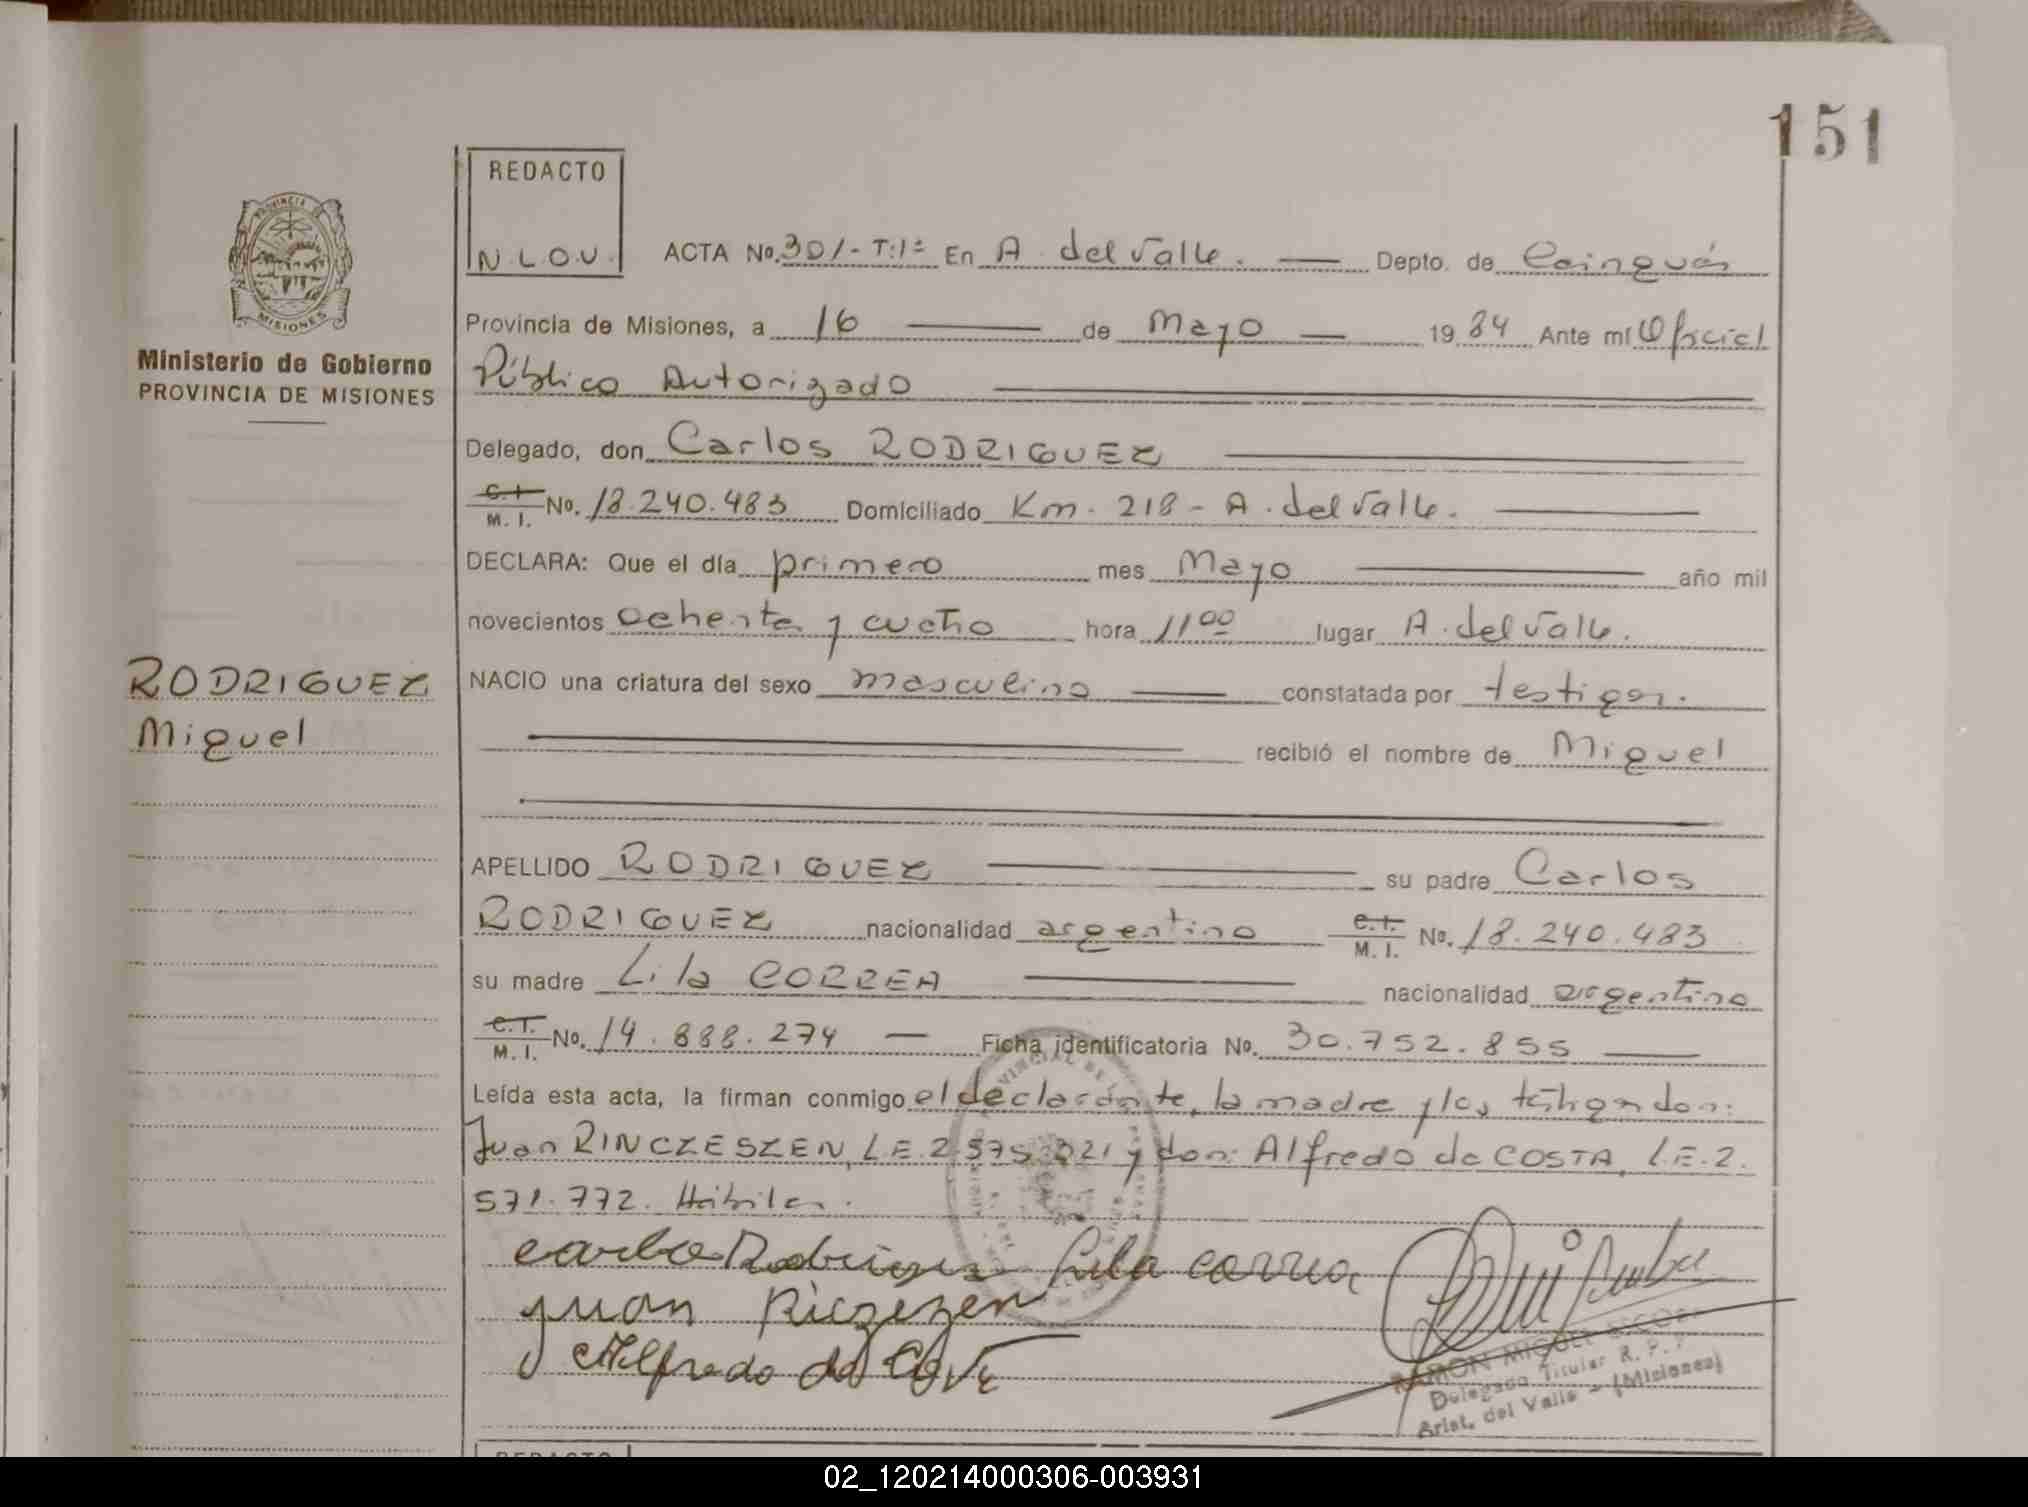 151
REDACTO
N.L.O.V.
PROVINCIA DE
MISIONES
Ministerio de Gobierno
PROVINCIA DE MISIONES
ACTA No. 301-T:1º En A. del Valle. Depto. de Cainguás
Provincia de Misiones, a 16 de Mayo 1984 Ante mí Oficial
Público Autorizado
Delegado, don Carlos RODRIGUEZ
C.I. M. I. No. 18.240.483 Domiciliado Km. 218 - A. del Valle.
DECLARA: Que el día primero mes Mayo año mil
novecientos ochenta y cuatro hora 11 00 lugar A. del Valle.
RODRIGUEZ
Miguel
NACIO una criatura del sexo masculino constatada por testigos.
recibió el nombre de Miguel
APELLIDO RODRIGUEZ su padre Carlos
RODRIGUEZ nacionalidad argentino C.I. M. I. No. 18.240.483
su madre Lila CORREA nacionalidad argentina
C.I. M. I. No. 14.888.274 Ficha identificatoria No. 30.752.855
Leída esta acta, la firman conmigo el declarante, la madre y los testigos don:
Juan RINCZESZEN, L.E. 2.575.221 y don: Alfredo da COSTA, L.E. 2.
571.772. Hábiles.
Carlos Rodriguez Lila correa
Juan Riczezen
Alfredo da
RAMON MIGUEL
Delegado Titular R. P.
Arist. del Valle - (Misiones)
REDACTO
02_120214000306-003931